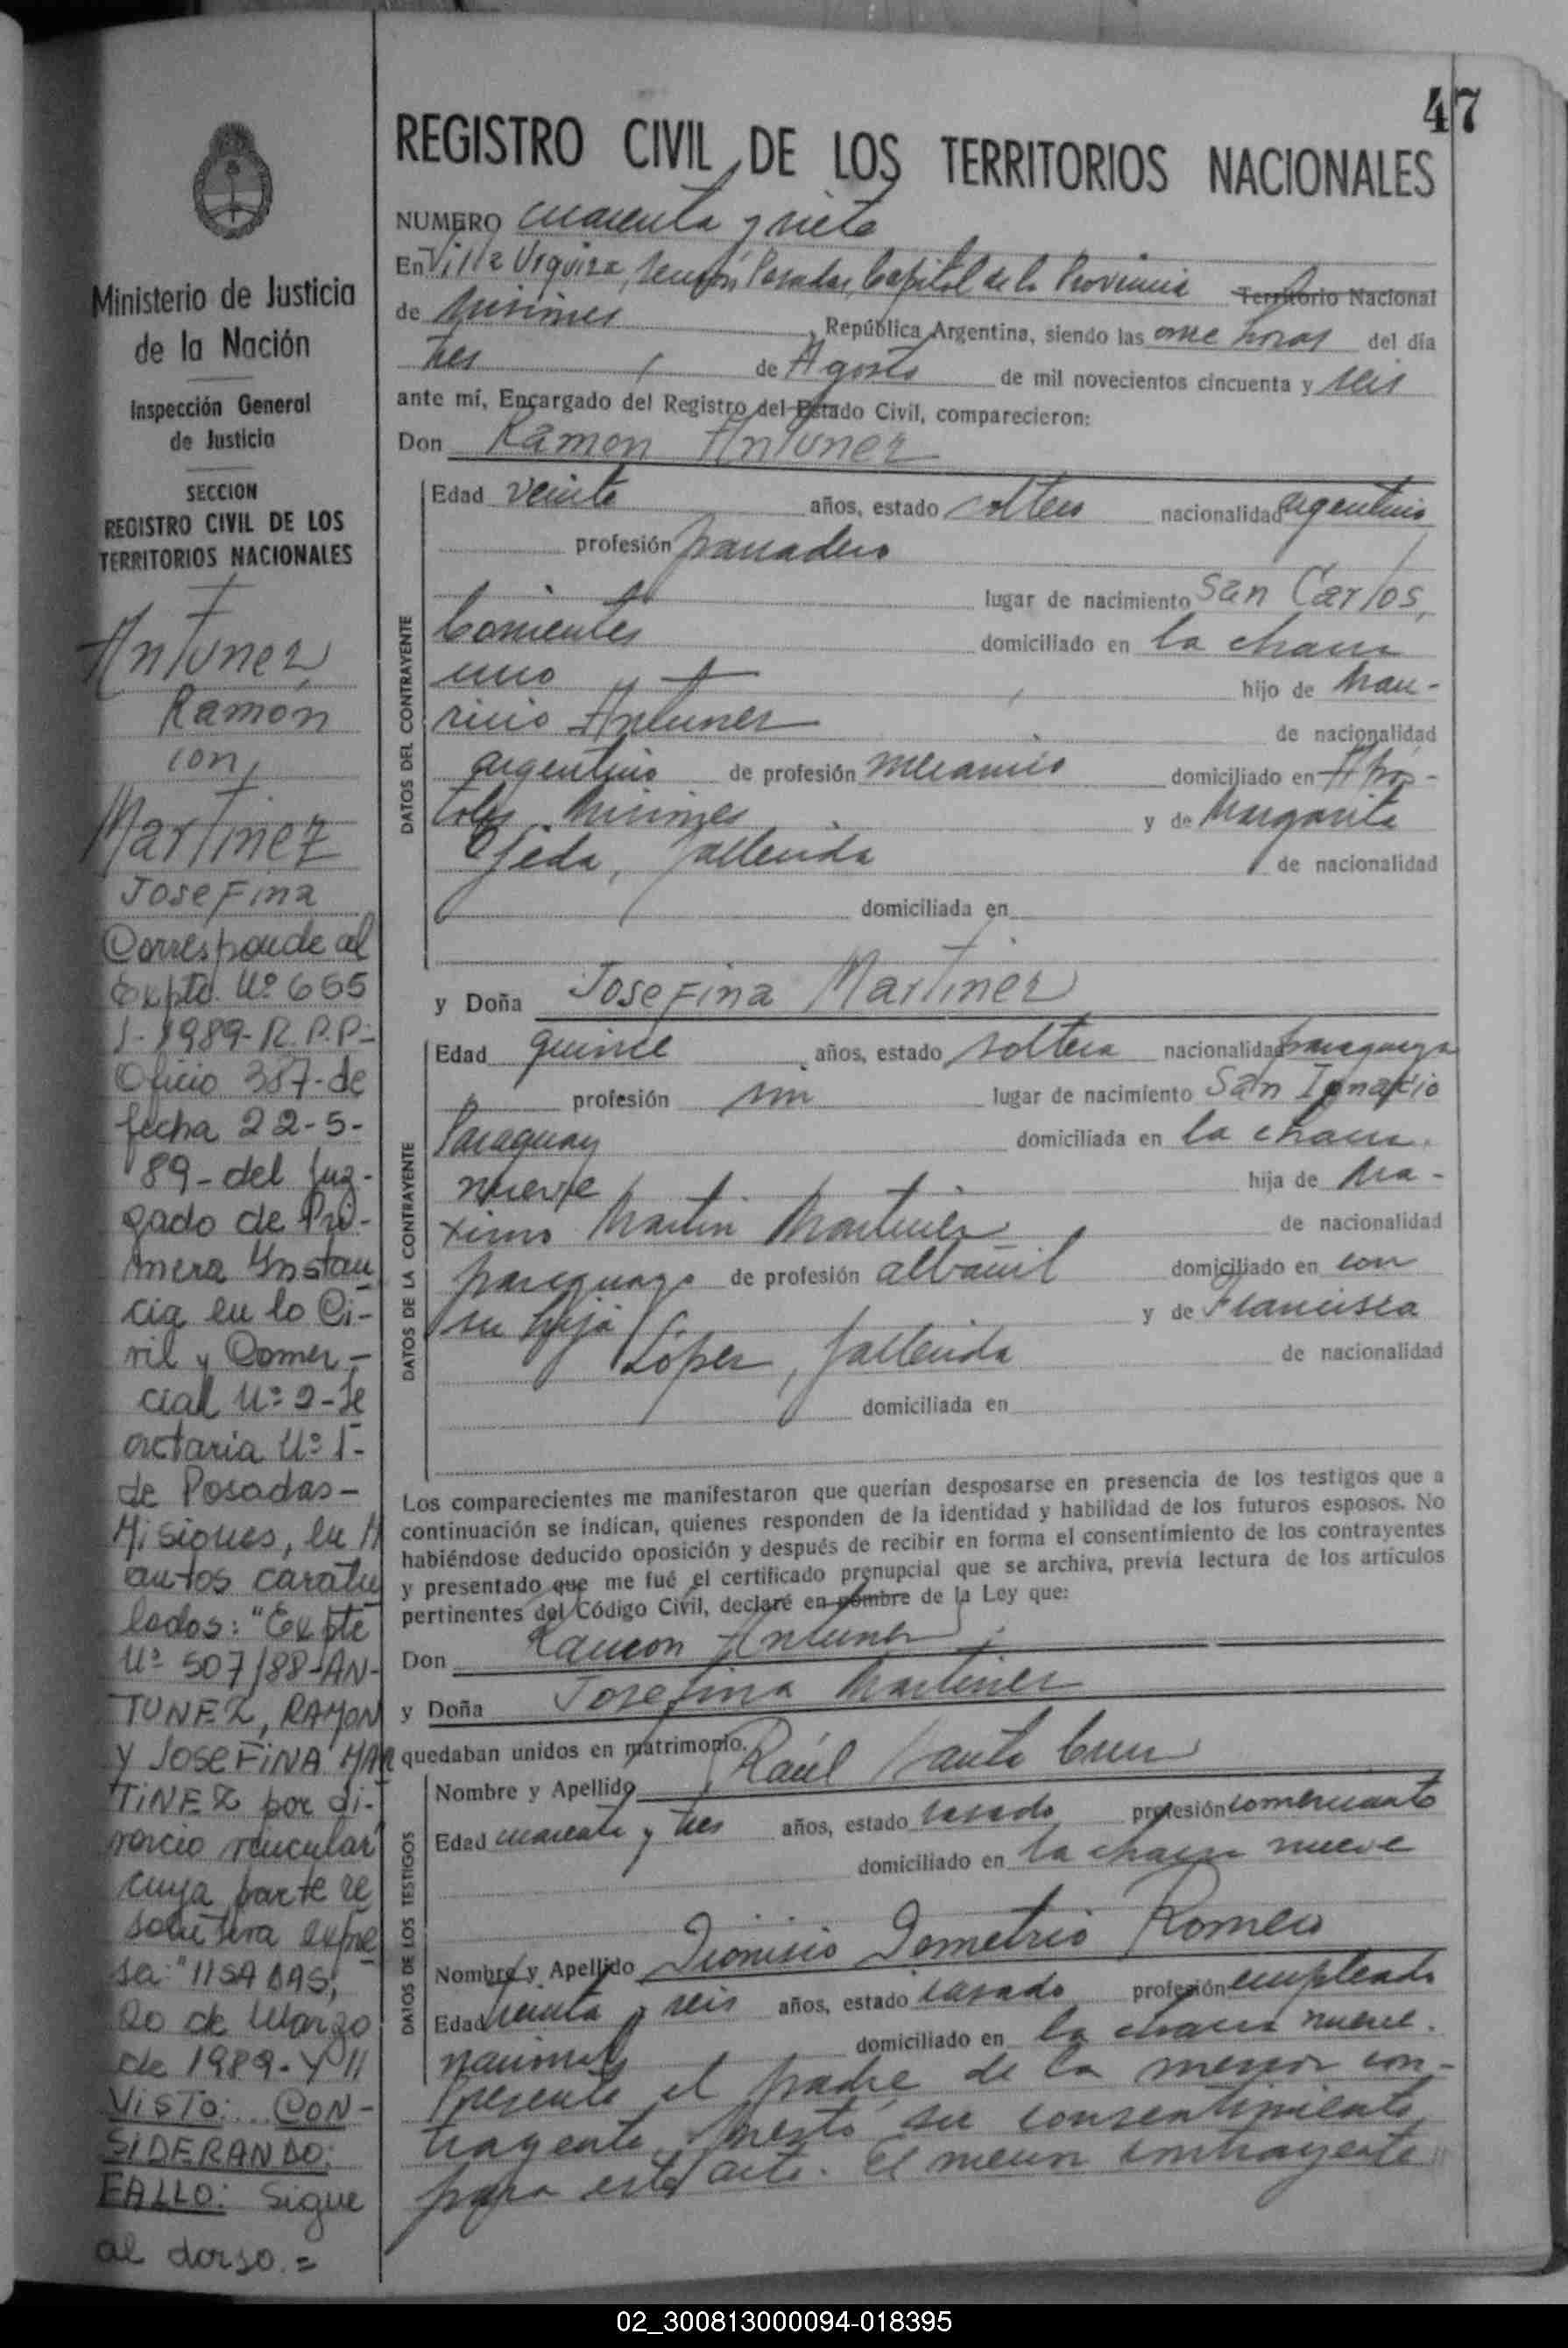 47
REGISTRO CIVIL DE LOS TERRITORIOS NACIONALES
NUMERO cuarenta y siete
En Villa Urquiza, sección Posadas, Capital de la Provincia Territorio Nacional
de Misiones, República Argentina, siendo las once horas del día
tres de Agosto de mil novecientos cincuenta y seis
ante mí, Encargado del Registro del Estado Civil, comparecieron:
Don Ramon Antunez
DATOS DEL CONTRAYENTE
Edad veinte años, estado soltero nacionalidad argentino
profesión panadero
lugar de nacimiento San Carlos,
Corrientes domiciliado en la chacra
uno hijo de Mau-
ricio Antunez de nacionalidad
argentino de profesión mecanico domiciliado en Após-
toles Misiones y de Margarita
Ojeda, fallecida de nacionalidad
domiciliada en
y Doña Josefina Martinez
DATOS DE LA CONTRAYENTE
Edad quince años, estado soltera nacionalidad paraguaya
profesión sin lugar de nacimiento San Ignacio
Paraguay domiciliada en la chacra
nueve hija de Ma-
ximo Martin Martinez de nacionalidad
paraguayo de profesión albañil domiciliado en con
su hija y de Francisca
López, fallecida de nacionalidad
domiciliada en
Los comparecientes me manifestaron que querían desposarse en presencia de los testigos que a
continuación se indican, quienes responden de la identidad y habilidad de los futuros esposos. No
habiéndose deducido oposición y después de recibir en forma el consentimiento de los contrayentes
y presentado que me fué el certificado prenupcial que se archiva, previa lectura de los artículos
pertinentes del Código Civil, declaré en nombre de la Ley que:
Don Ramon Antunez
y Doña Josefina Martinez
quedaban unidos en matrimonio.
DATOS DE LOS TESTIGOS
Nombre y Apellido Raúl
Edad cuarenta y tres años, estado casado profesión comerciante
domiciliado en la chacra nueve
Nombre y Apellido Dionisio Demetrio Romero
Edad treinta y seis años, estado casado profesión empleado
nacional domiciliado en la chacra nueve.
Presente el padre de la menor con-
trayente, prestó su consentimiento
para este acto. El menor contrayente
Ministerio de Justicia
de la Nación
Inspección General
de Justicia
SECCION
REGISTRO CIVIL DE LOS
TERRITORIOS NACIONALES
Antunez
Ramón
con
Martinez
Josefina
Corresponde al
Expte. Nº 655
J-1989-R.P.P.-
Oficio 387-de
fecha 22-5-
89-del Juz-
gado de Pri-
mera Instan
cia en lo Ci-
vil y Comer-
cial Nº 2-Se
cretaria Nº 1-
de Posadas-
Misiones, en
autos caratu
lados: "Expte
Nº 507/88-AN-
TUNEZ, RAMON
Y JOSEFINA MAR
TINEZ por di-
vorcio vincular"
cuya parte re
solutiva expre
sa: "//SADAS,
20 de Marzo
de 1989-Y//
VISTO: CON-
SIDERANDO:
FALLO: Sigue
al dorso.=
02_300813000094-018395